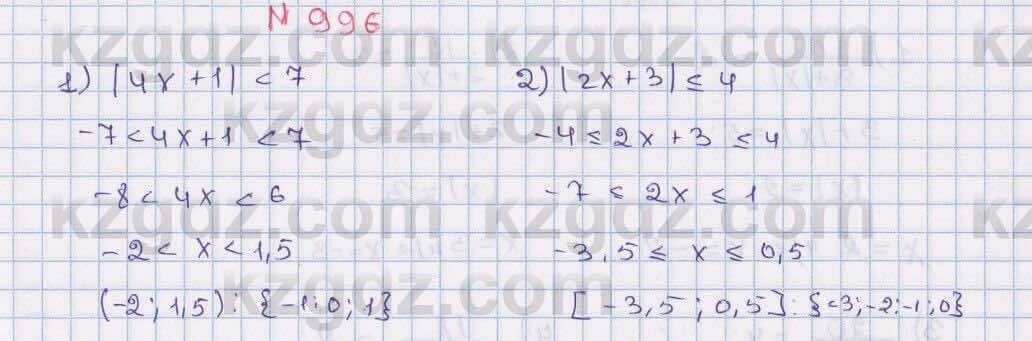 N 996
1) |4x + 1| < 7
-7 < 4x + 1 < 7
-8 < 4x < 6
-2 < x < 1,5
(-2; 1,5): {-1; 0; 1}
2) |2x + 3| ≤ 4
-4 ≤ 2x + 3 ≤ 4
-7 ≤ 2x ≤ 1
-3,5 ≤ x ≤ 0,5
[-3,5; 0,5]: {-3; -2; -1; 0}
kzgdz.com
kzgdz.com
kzgdz.com
kzgdz.com
kzgdz.com
kzgdz.com